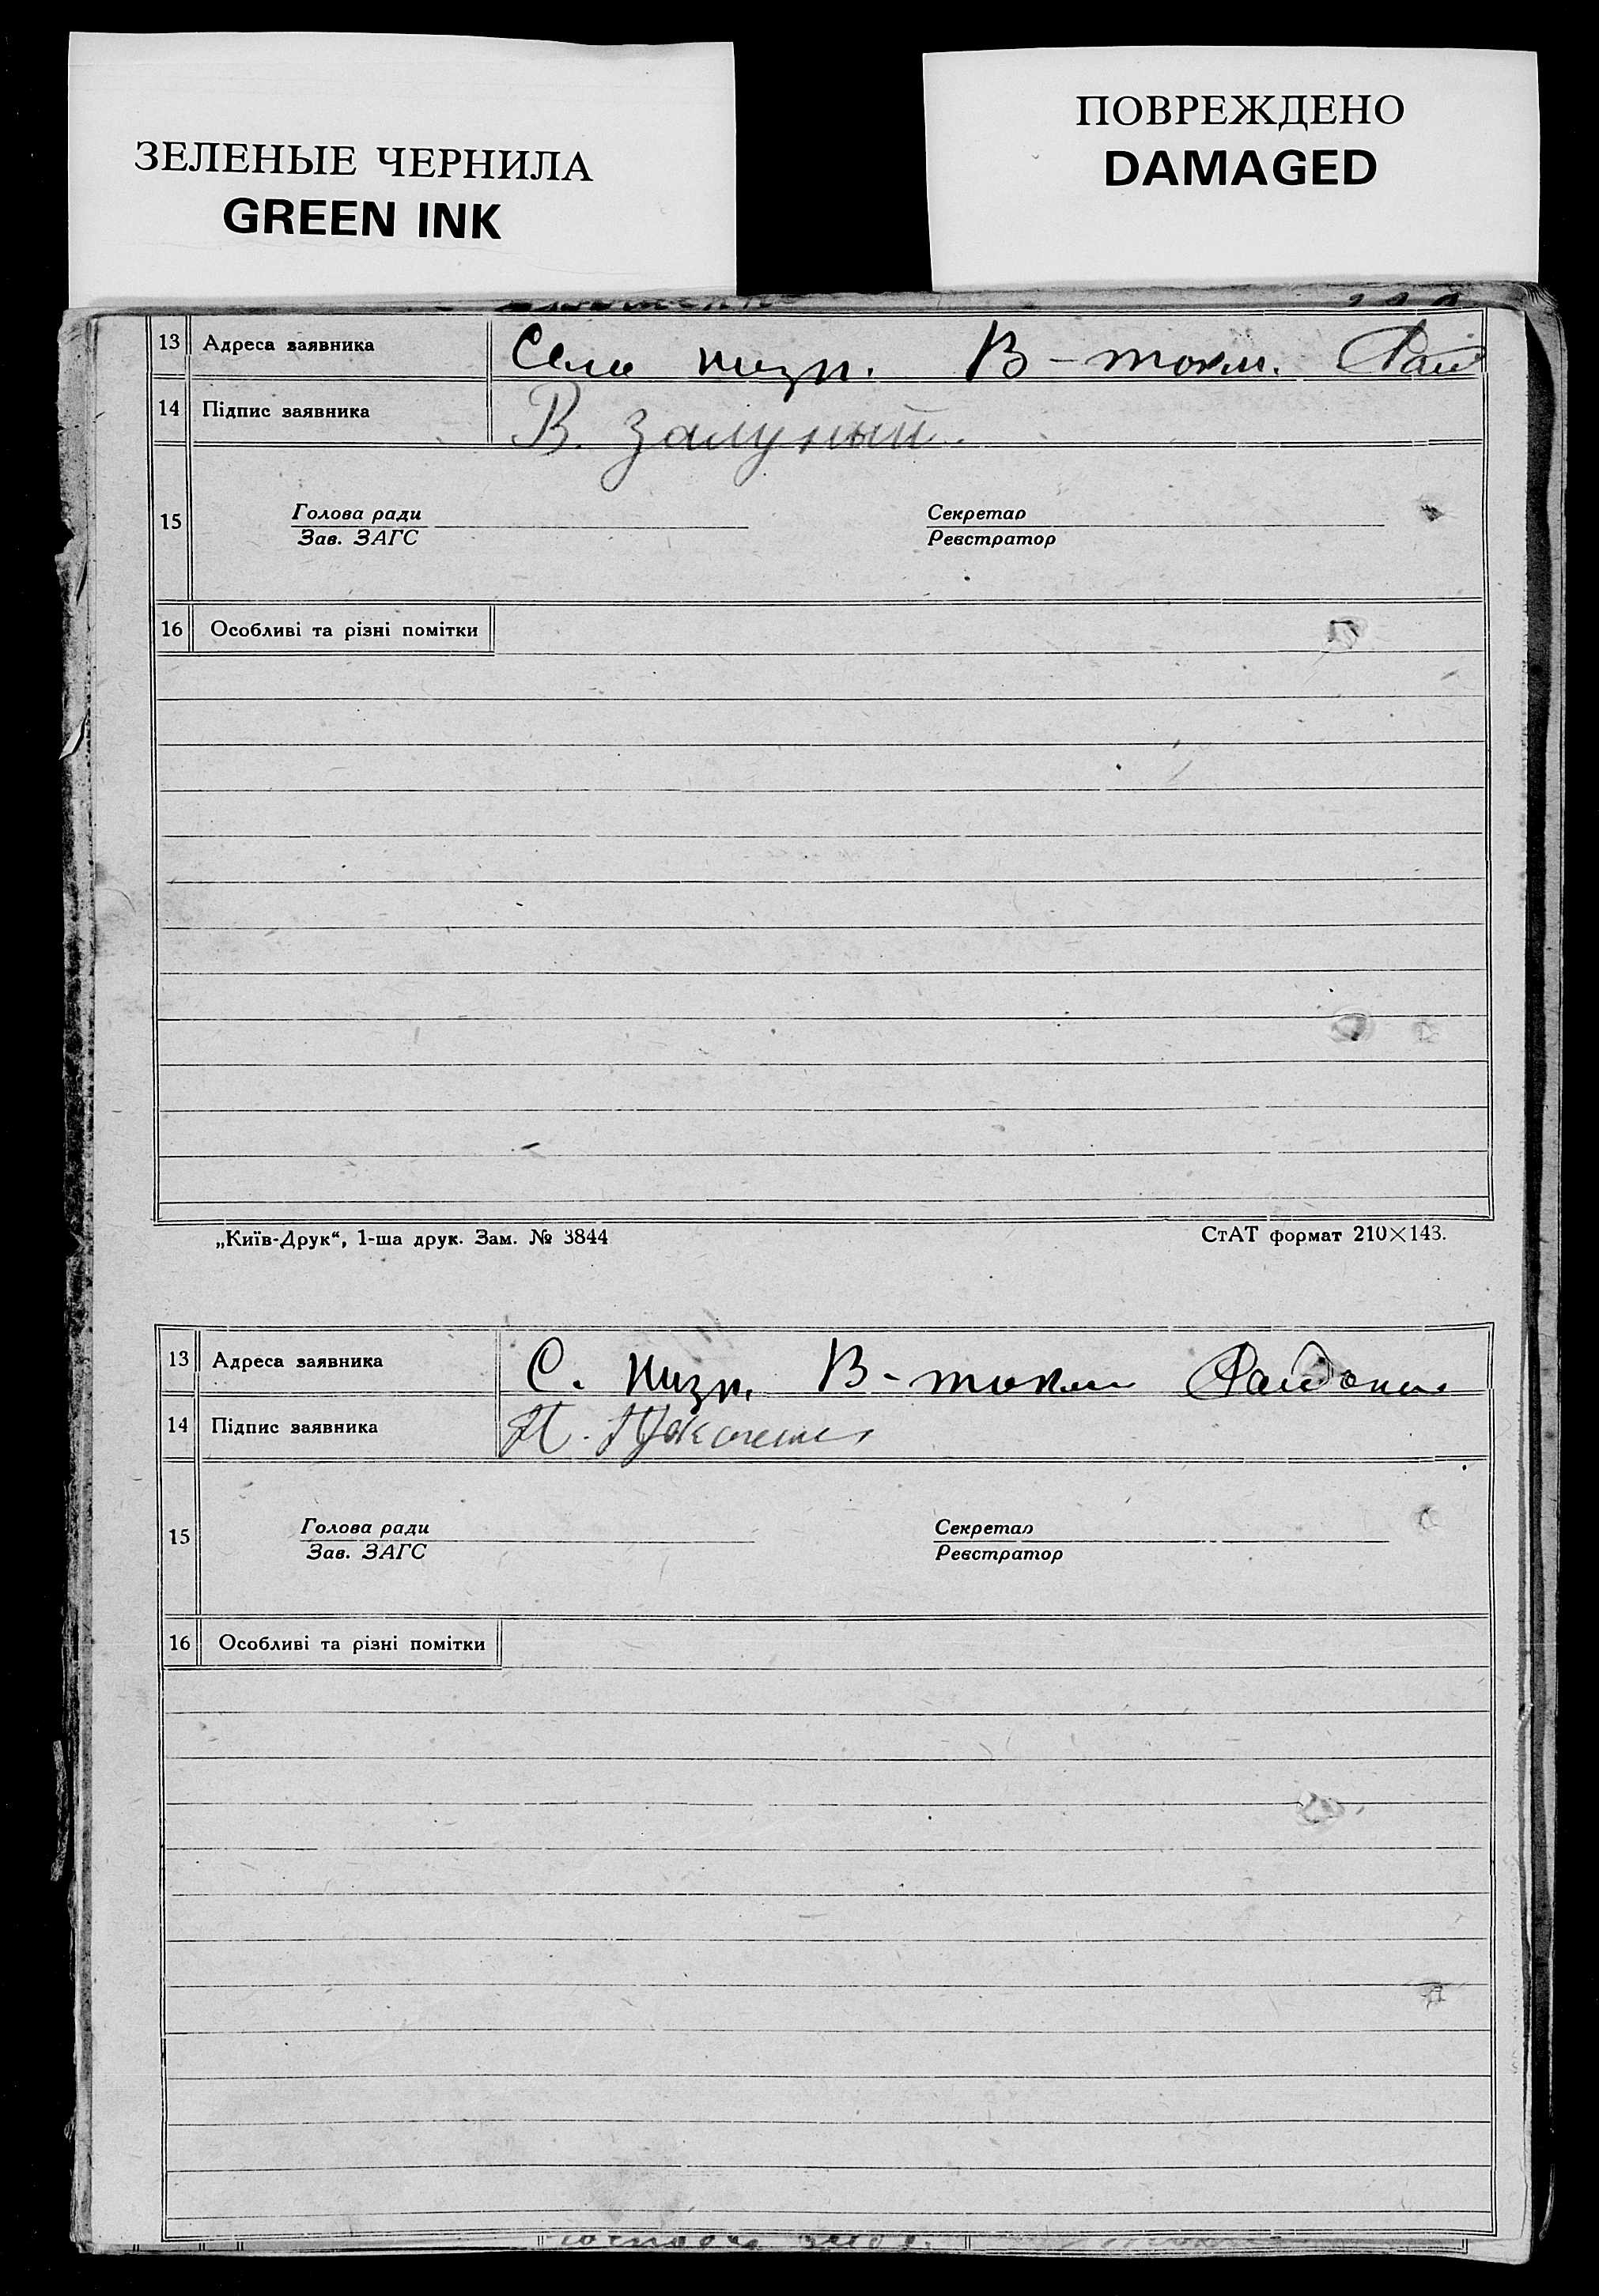 ЗЕЛЕНЫЕ ЧЕРНИЛА
GREEN INK
ПОВРЕЖДЕНО
DAMAGED
13 Адреса заявника Село низп. В-токм. Рай
14 Підпис заявника В. Залужный.
15 Голова ради Секретар
Зав. ЗАГС Реєстратор
16 Особливі та різні помітки
„Київ-Друк“, 1-ша друк. Зам. № 3844 СтАТ формат 210×143.
13 Адреса заявника С. низп. В-токм Района
14 Підпис заявника
15 Голова ради Секретар
Зав. ЗАГС Реєстратор
16 Особливі та різні помітки